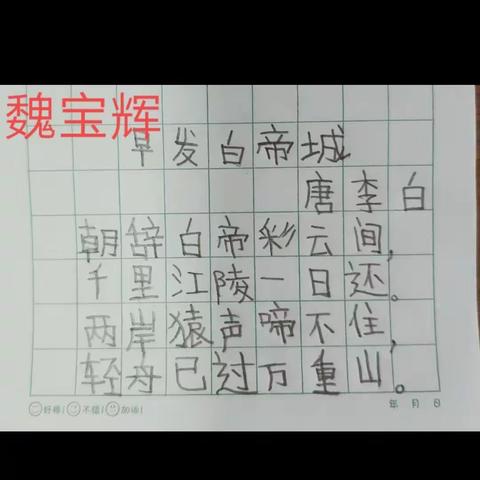 魏宝辉
早发白帝城
唐李白
朝辞白帝彩云间，
千里江陵一日还。
两岸猿声啼不住，
轻舟已过万重山。
好棒！不错！加油！
年 月 日